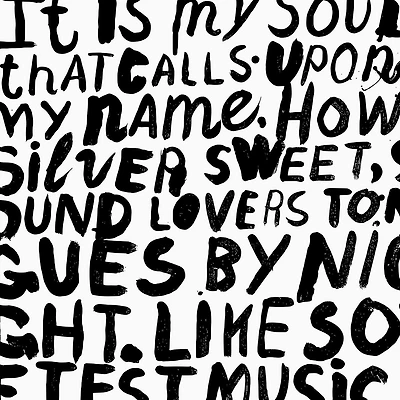 It is my SOUL
thAT CALLS·UPON
MY name. HOW
SilVER SWEET, S
OUND LOVERS TON
GUES BY NIG
GHT. LIKE SO
FTEST MUSIC